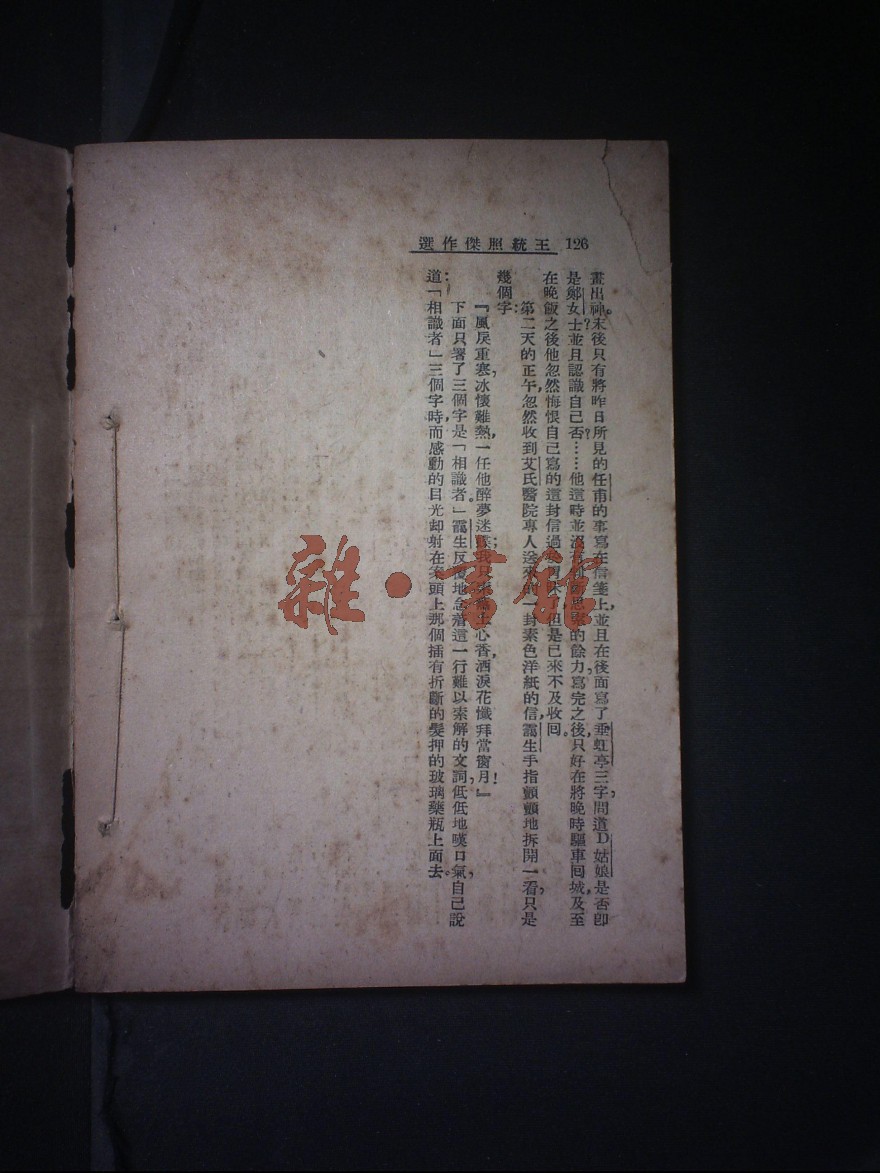 126 王統照傑作選
畫出神。末後只有將昨日所見的任甫的事寫在信箋上，並且在後面寫了垂虹亭三字，問道D姑娘是否卽
是鄭女士？並且認識自己否？……他這時並沒有思索的餘力，寫完之後，只好在將晚時驅車回城，及至
在晚飯之後他忽然悔恨自己寫的這封信過，但是已來不及收回。
第二天的正午，忽然收到艾氏醫院專人送來的一封素色洋紙的信，靄生手指顫顫地拆開一看，只是
幾個字：
『風戾重寒，冰懷難熱，一任他醉夢迷；我只心香，洒淚花懺拜當窗月！』
下面只署了三個字是「相識者」。靄生反覆地念着這一行難以索解的文詞，低低地嘆口氣，自己說
道：「相識者」三個字時，而感動的目光却射在案頭上那個插有折斷的髮押的玻璃藥瓶上面去。
雜·書館